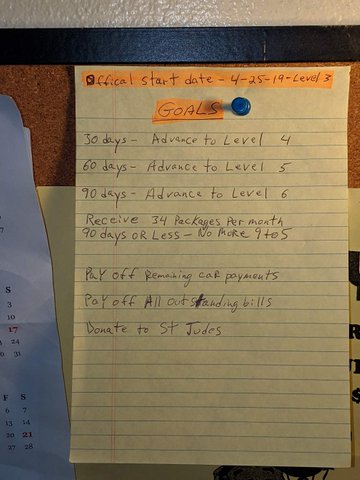 Offical start date - 4-25-19-Level 3
GOALS
30 days- Advance to Level 4
60 days- Advance to Level 5
90 days- Advance to Level 6
Receive 34 Packages Per month
90 days OR Less- No More 9 to 5
Pay off Remaining car payments
Pay off All outstanding bills
Donate to St Judes
S
3
10
17
24
31
F S
6 7
13 14
20 21
27 28